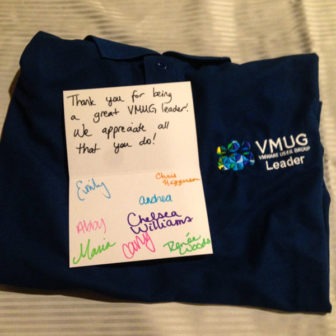 Thank you for being
a great VMUG leader!
We appreciate all
that you do!
Emily
Chris
andrea
Abby
Chelsea
Williams
Maria
Renée
Woods
VMUG
VMWARE USER GROUP
Leader